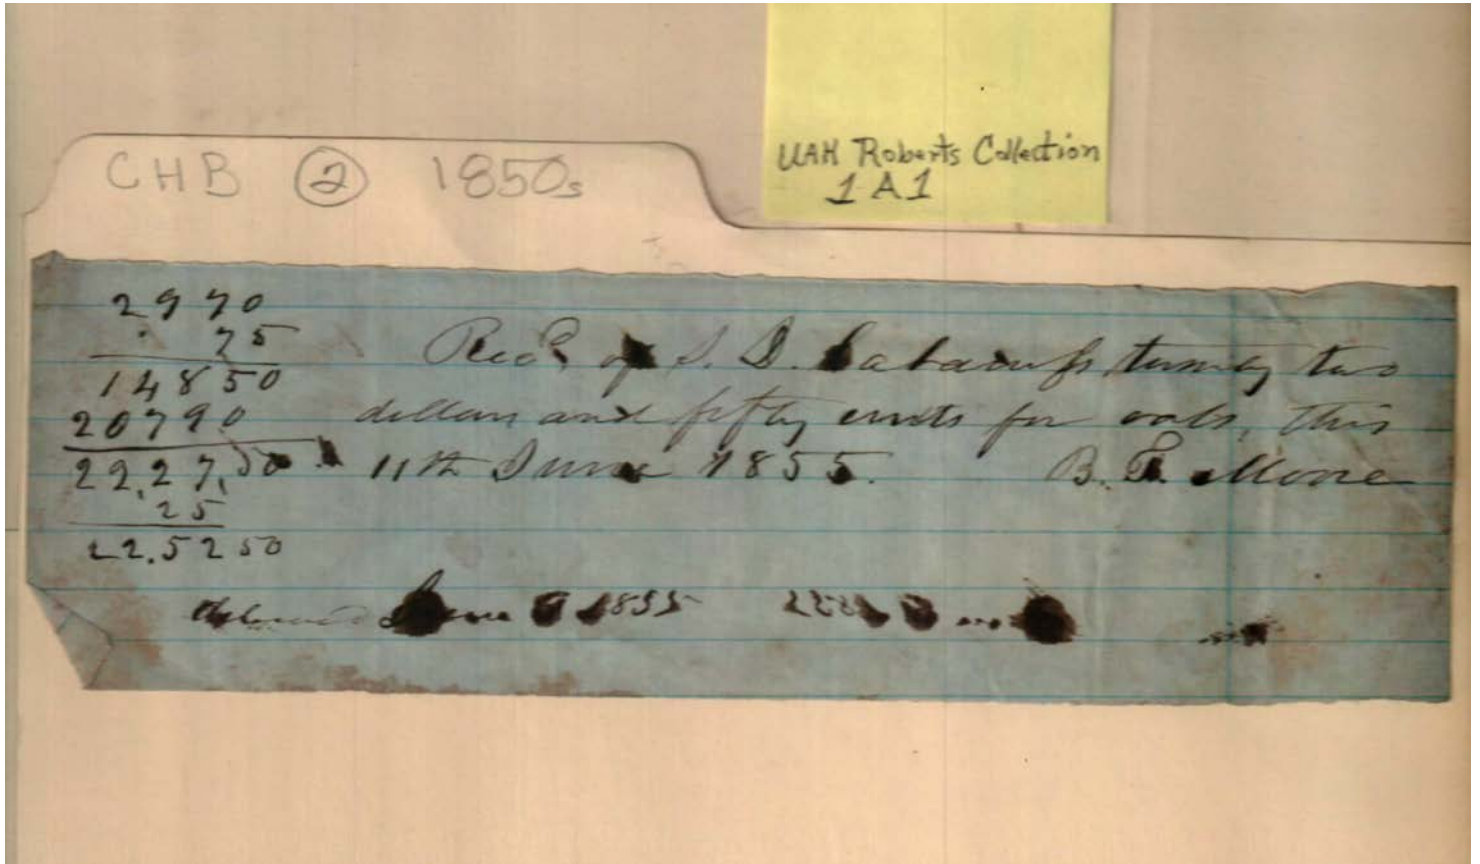 UAH Roberts Collection
1A1
CHB 2 1850s
2970
75
14850
20790
22,27,50
25
22.5250
Recd. of S. D. Cabaniss twenty two
dollars and fifty cents for oats, this
11th June 1855. B. T. Moore
June 9 1855